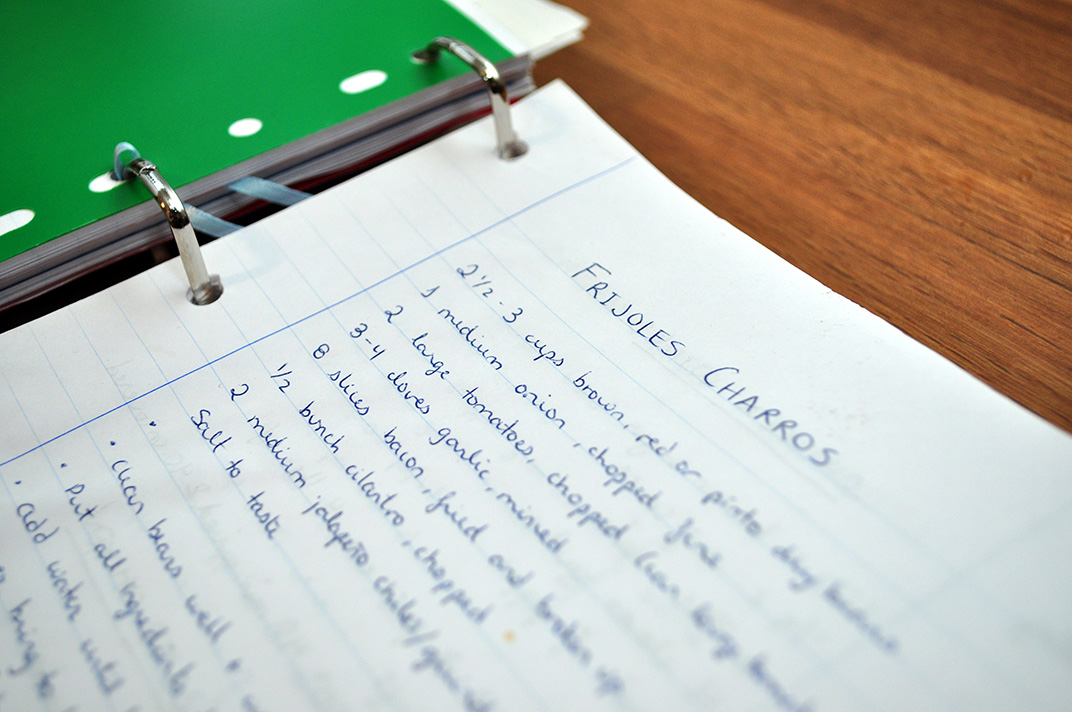 FRIJOLES CHARROS
2 1/2 - 3 cups brown, red or pinto dry beans
1 medium onion, chopped fine
2 large tomatoes, chopped (van
3-4 cloves garlic, minced
8 slices bacon, fried and broken up
1/2 bunch cilantro, chopped
2 medium jalapeño chiles/
Salt to taste
• clean beans well
• Put all ingredients
• add water until
bring to